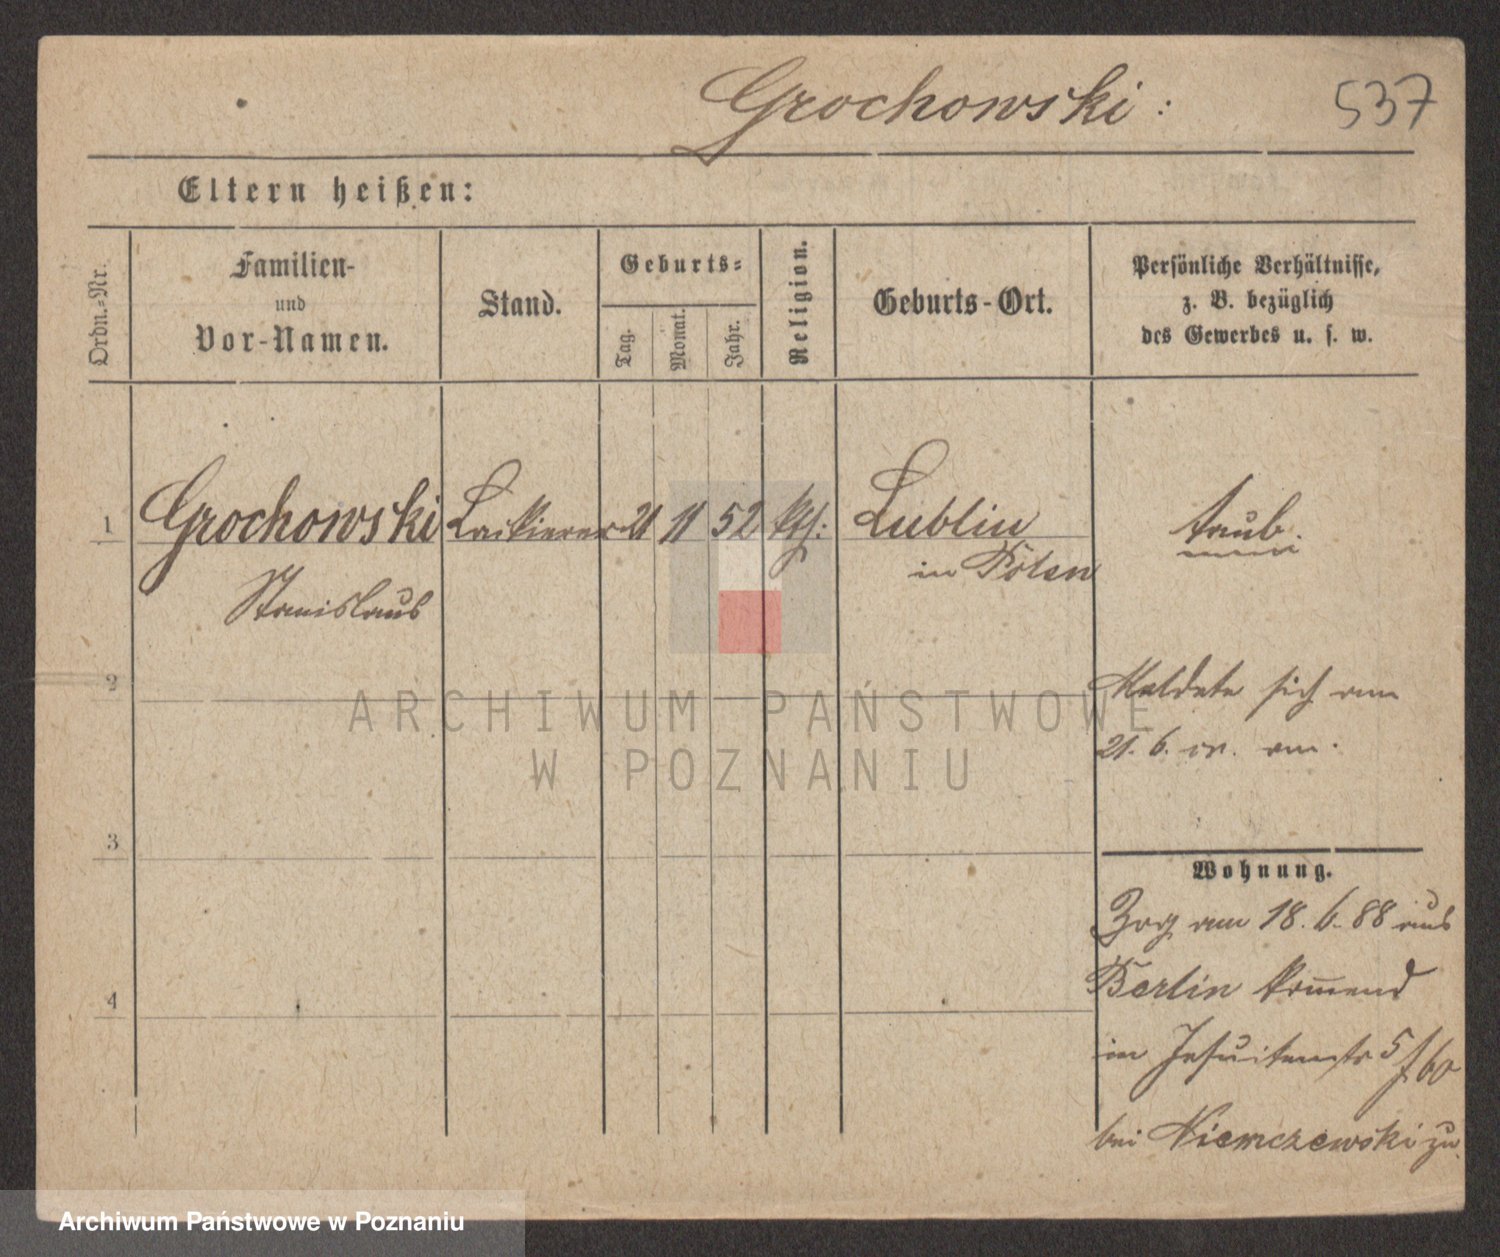 Grochowski:
537
Eltern heißen:
Ordn.-Nr.
Familien-
und
Vor-Namen.
Stand.
Geburts-
Tag.
Monat.
Jahr.
Religion.
Geburts-Ort.
Persönliche Verhältnisse,
z. B. bezüglich
des Gewerbes u. s. w.
1 Grochowski Lackierer 21 11 52 kth: Lublin taub.
in Polen
Stanislaus
2
Meldete sich am
21. 6. cr. an.
ARCHIWUM PAŃSTWOWE
W POZNANIU
3
Wohnung.
Zog am 18. 6. 88 aus
Berlin kom̅end
4
in Jesuitenstr 5
bei Niemczewski zu.
Archiwum Państwowe w Poznaniu